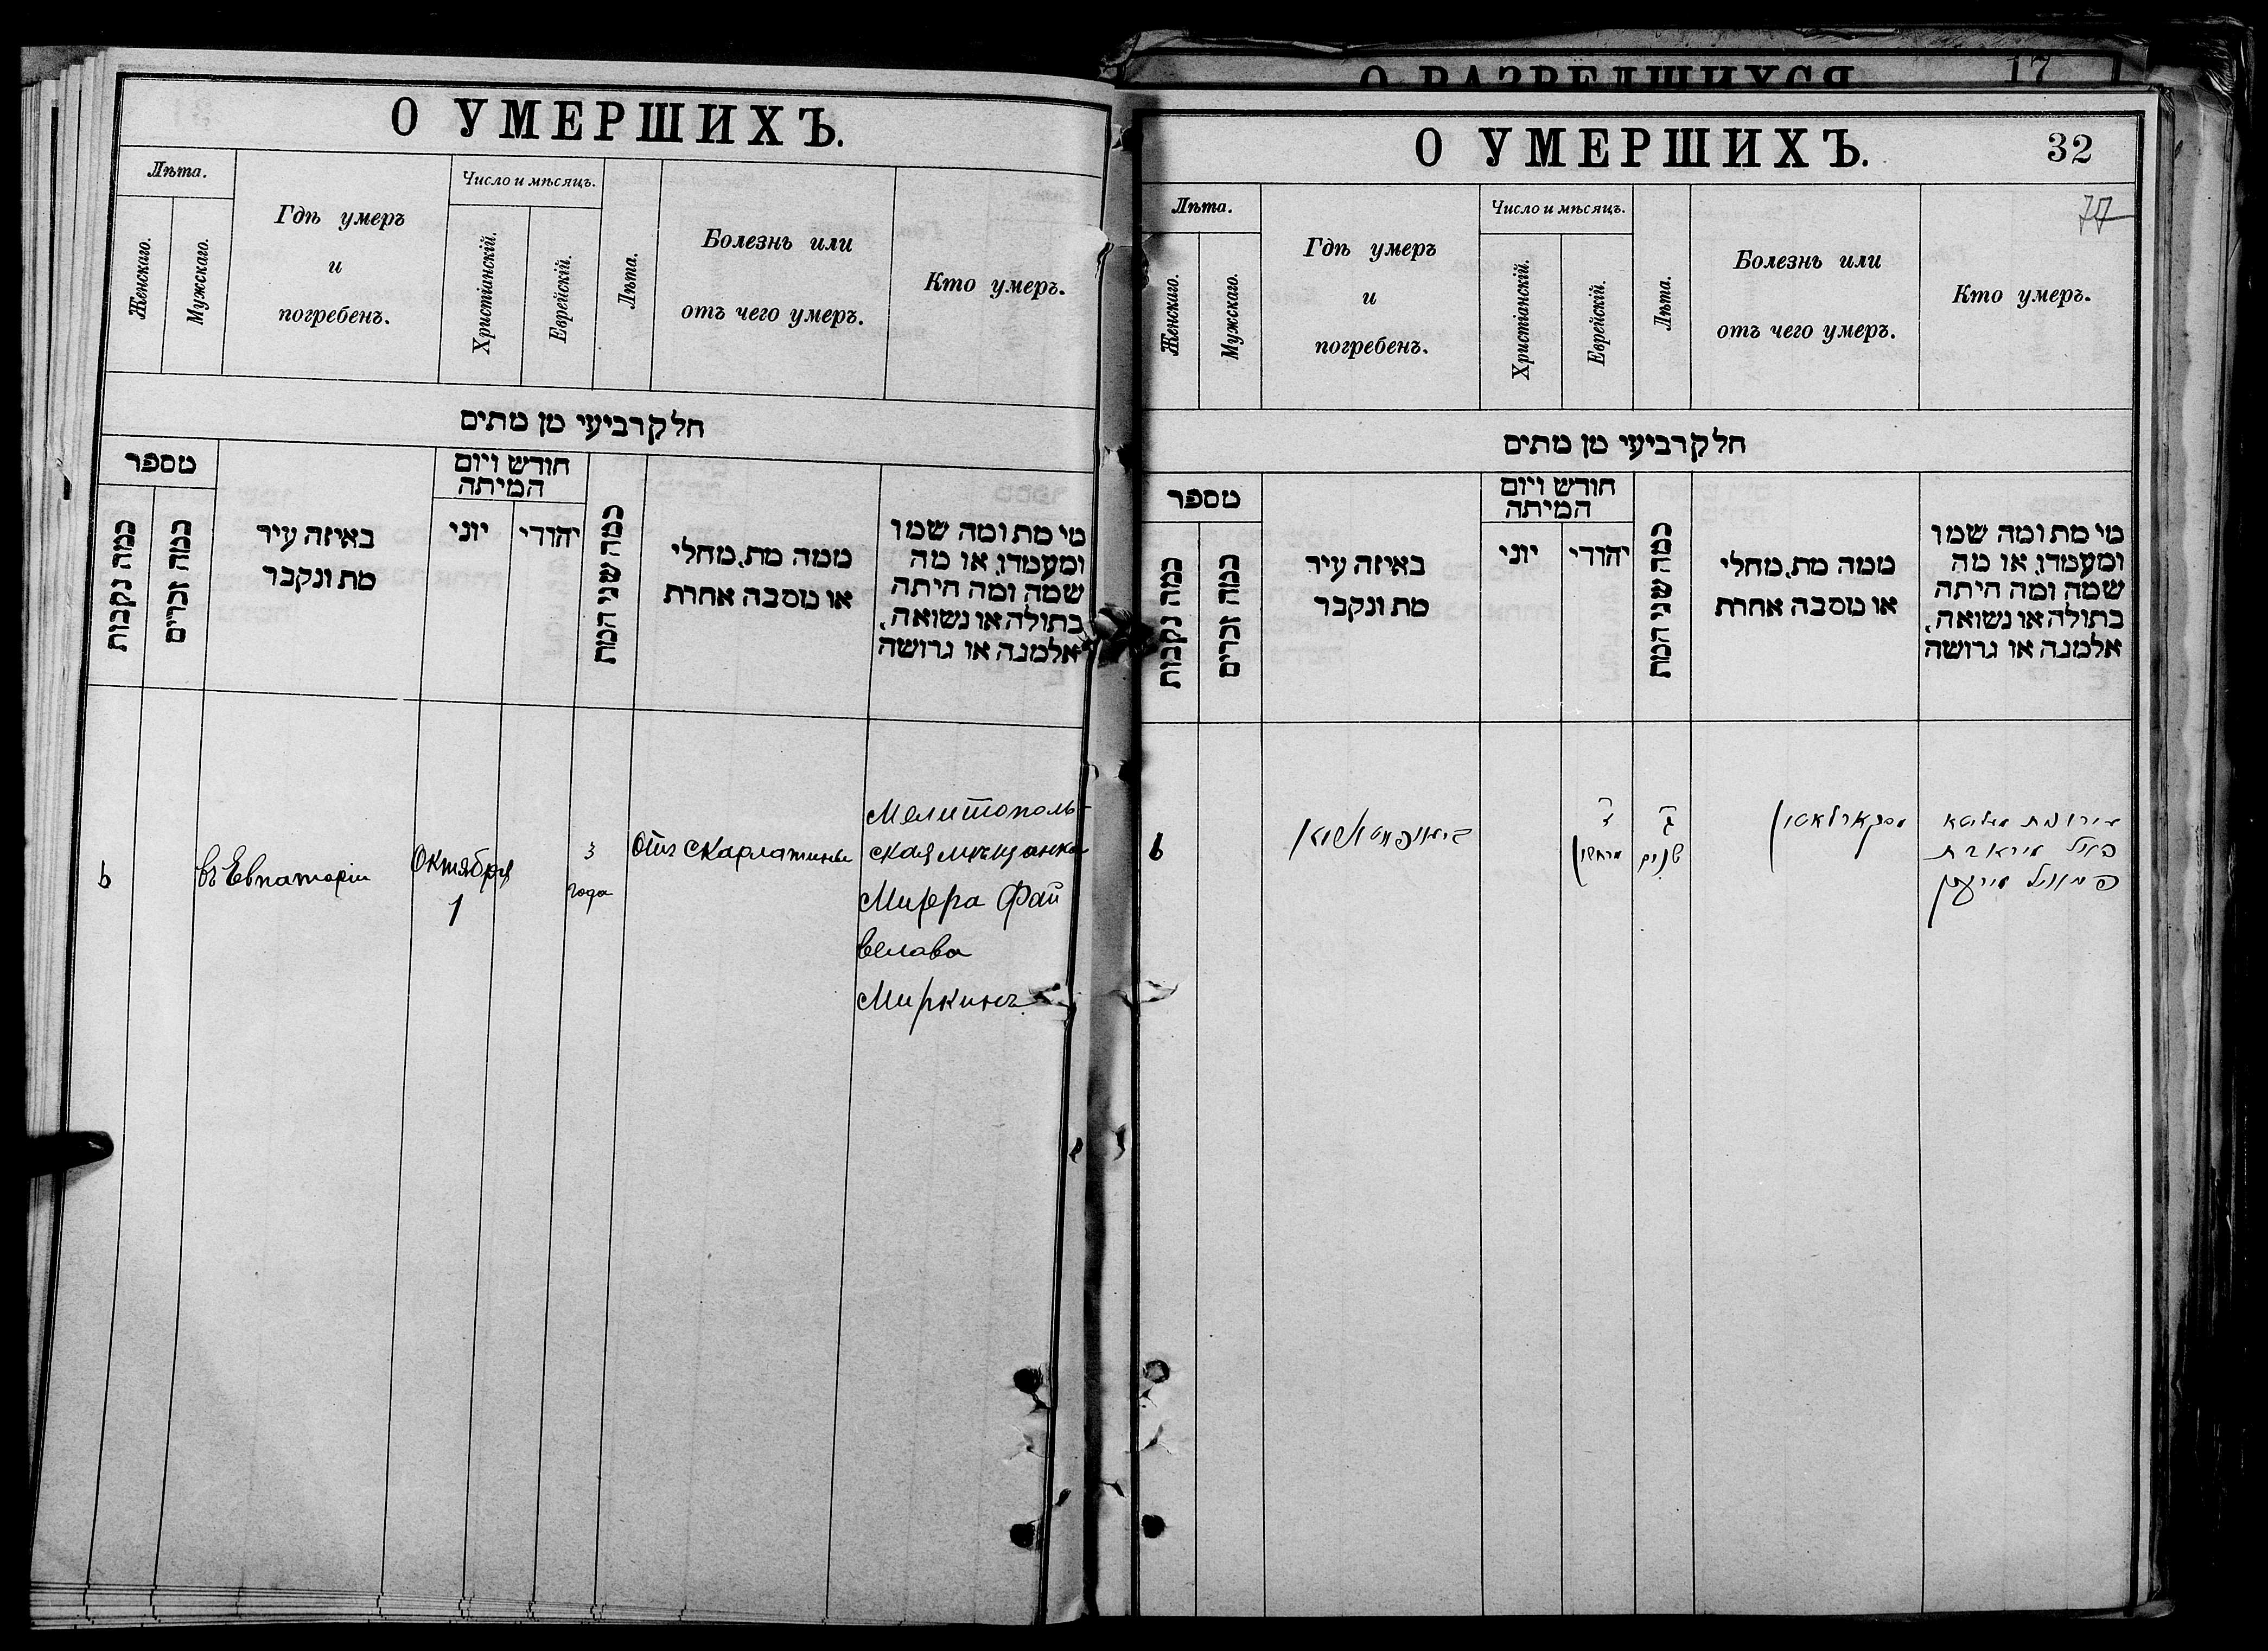 О УМЕРШИХЪ.
Лѣта.
Женскаго.
Мужскаго.
Гдѣ умеръ
и
погребенъ.
Число и мѣсяцъ.
Христіанскій.
Еврейскій.
Лѣта.
Болезнь или
отъ чего умеръ.
Кто умеръ.
חלק רביעי מן מתים
מספר
כמה נקבות
כמה זכרים
באיזה עיר
מת ונקבר
חודש ויום
המיתה
יוני
יהודי
כמה שני המת
ממה מת, מחלי
או מסבה אחרת
מי מת ומה שמו
ומעמדו, או מה
שמה ומה היתה
בתולה או נשואה,
אלמנה או גרושה
6
въ Евпаторіи
Октября
1
3
года
Отъ скарлатины
Мелитополь-
ская мѣщанка
Фай
велова
Миркинъ
О РАЗВЕДШИХСЯ
17
О УМЕРШИХЪ.
32
77
Лѣта.
Женскаго.
Мужскаго.
Гдѣ умеръ
и
погребенъ.
Число и мѣсяцъ.
Христіанскій.
Еврейскій.
Лѣта.
Болезнь или
отъ чего умеръ.
Кто умеръ.
חלק רביעי מן מתים
מספר
כמה נקבות
כמה זכרים
באיזה עיר
מת ונקבר
חודש ויום
המיתה
יוני
יהודי
כמה שני המת
ממה מת, מחלי
או מסבה אחרת
מי מת ומה שמו
ומעמדו, או מה
שמה ומה היתה
בתולה או נשואה,
אלמנה או גרושה
6
מרחשון
ג
שנים